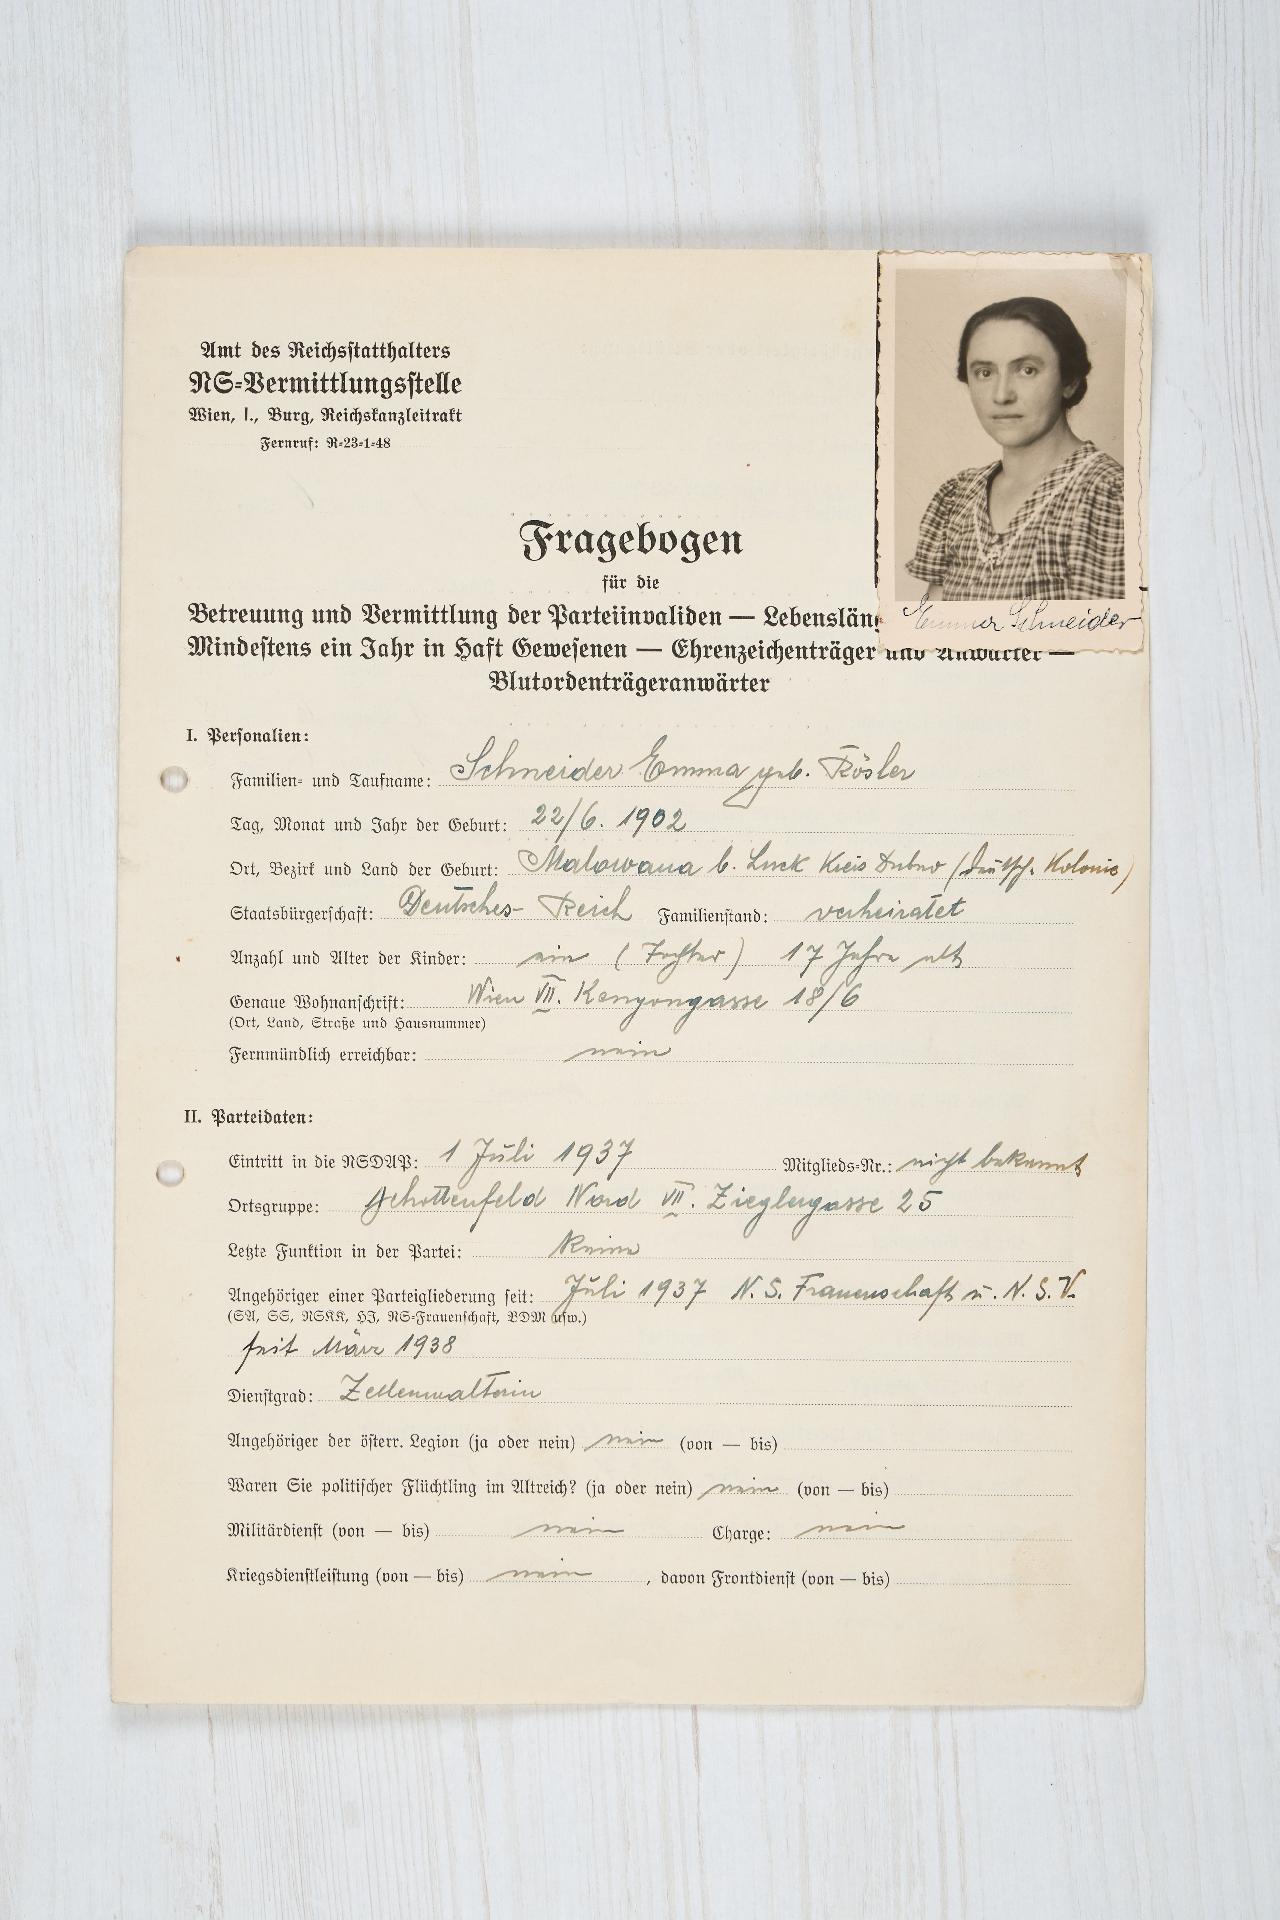 Amt des Reichsstatthalters
NS-Vermittlungsstelle
Wien, I., Burg, Reichskanzleitrakt
Fernruf: R-23-1-48
Emma Schneider
Fragebogen
für die
Betreuung und Vermittlung der Parteiinvaliden — Lebensläng
Mindestens ein Jahr in Haft Gewesenen — Ehrenzeichenträger und Anwärter —
Blutordenträgeranwärter
I. Personalien:
Familien- und Taufname: Schneider Emma geb. Rösler
Tag, Monat und Jahr der Geburt: 22/6. 1902
Ort, Bezirk und Land der Geburt: Malowana b. Luck Kreis Dubno (deutsch. Kolonie)
Staatsbürgerschaft: Deutsches-Reich Familienstand: verheiratet
Anzahl und Alter der Kinder: ein (Tochter) 17 Jahre alt
Genaue Wohnanschrift: Wien VII. Kenyongasse 18/6
(Ort, Land, Straße und Hausnummer)
Fernmündlich erreichbar: nein
II. Parteidaten:
Eintritt in die NSDAP: 1 Juli 1937 Mitglieds-Nr.: nicht bekannt
Ortsgruppe: Schottenfeld Nord VII. Zieglergasse 25
Letzte Funktion in der Partei: keine
Angehöriger einer Parteigliederung seit: Juli 1937 N. S. Frauenschaft u. N. S. V.
(SA, SS, NSKK, HJ, NS-Frauenschaft, BDM usw.)
seit März 1938
Dienstgrad: Zellenwalterin
Angehöriger der österr. Legion (ja oder nein) nein (von — bis)
Waren Sie politischer Flüchtling im Altreich? (ja oder nein) nein (von — bis)
Militärdienst (von — bis) nein Charge: nein
Kriegsdienstleistung (von — bis) nein, davon Frontdienst (von — bis)